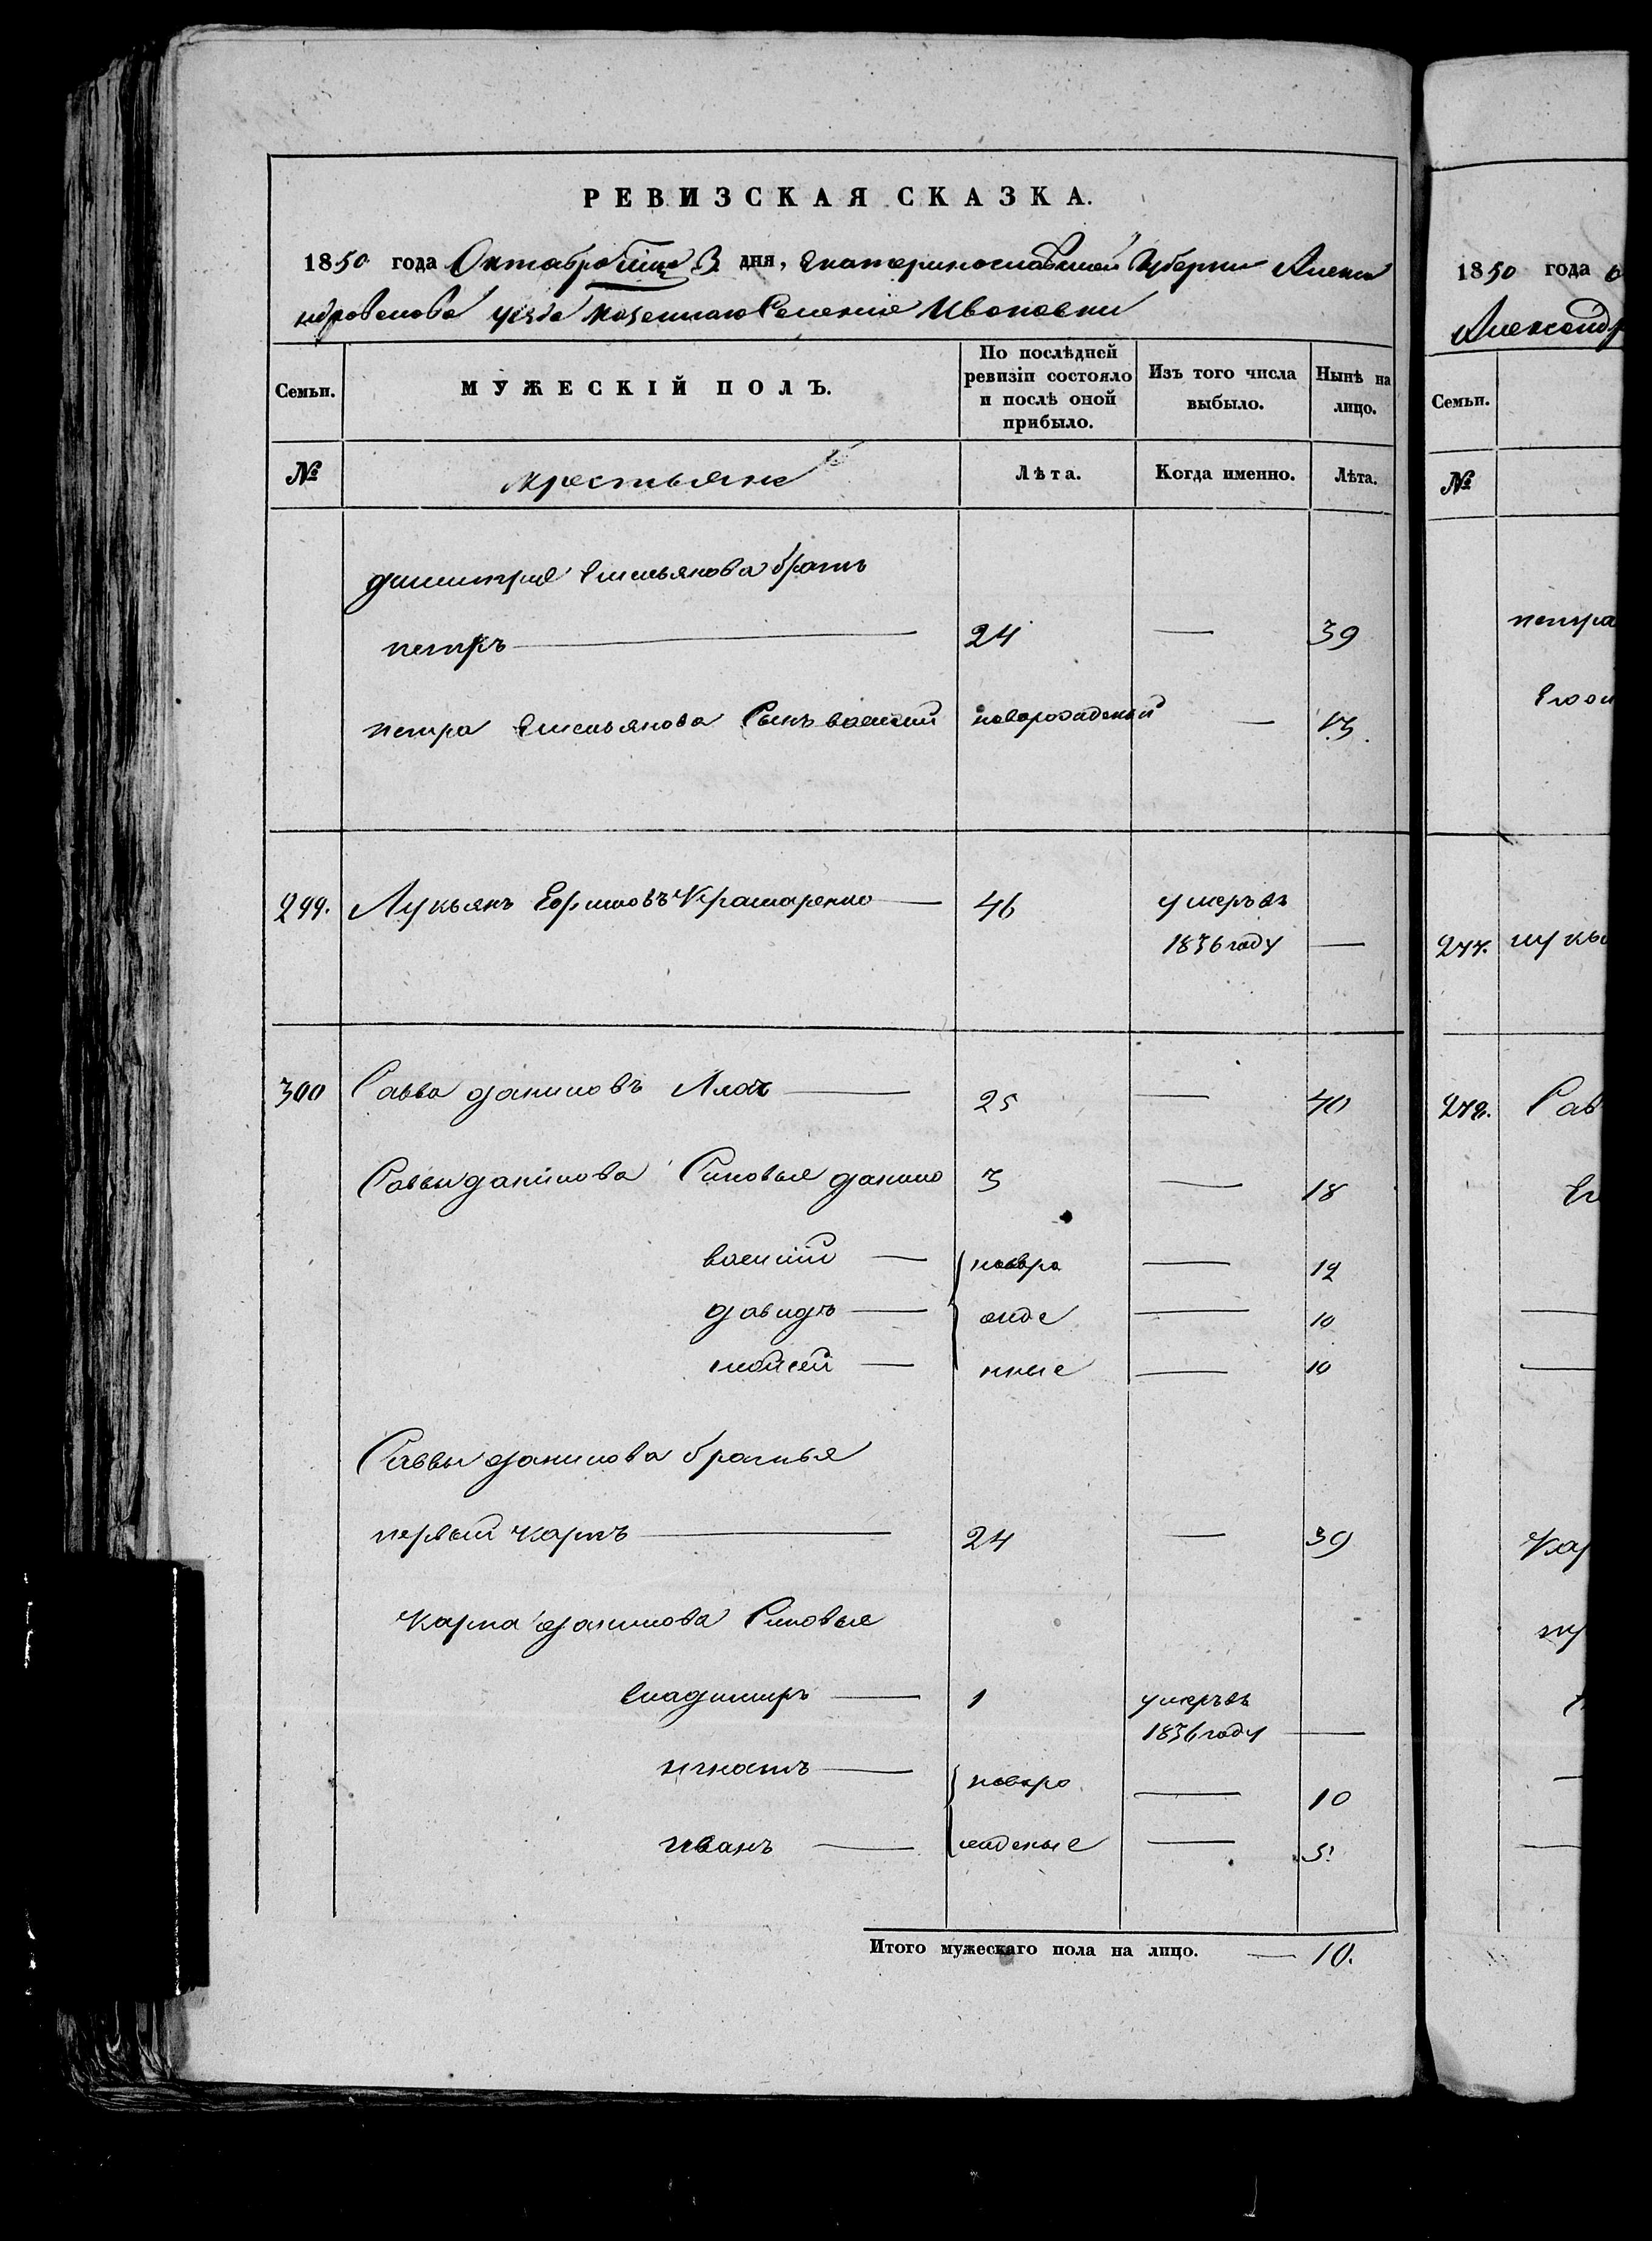 РЕВИЗСКАЯ СКАЗКА.
1850 года Октабра мца 3 дня, Екатеринославской Губерни Алекса
ндровскова уезда казеннаго Селенiе Ивановки
Семьи. МУЖЕСКІЙ ПОЛЪ. По послѣдней ревизіи состояло и послѣ оной прибыло. Изъ того числа выбыло. Нынѣ на лицо.
№ крестьяне Лѣта. Когда именно. Лѣта.
димитрия Емельянова братъ
петръ — 24 — 39
петра Емельянова Сынъ василий новарожденый — 13.
299. Лукьянъ Ефимовъ Крамаренко — 46 умеръ въ
1836 году —
300 Савва даниловъ — 25 — 40
Саввы данилова Сыновья данило 3 — 18
василий — новоро — 12
давидъ — жде — 10
мойсей — нные — 10
Саввы данилова братья
первый карпъ — 24 — 39
Карпа данилова Сыновья
владимиръ — 1 умеръ въ
1836 году —
игнатъ — новоро — 10
иванъ — жденые — 5.
Итого мужескаго пола на лицо. — 10.
1850 года
Александр
Семьи.
№
петра
277.
278. Сав
Кар